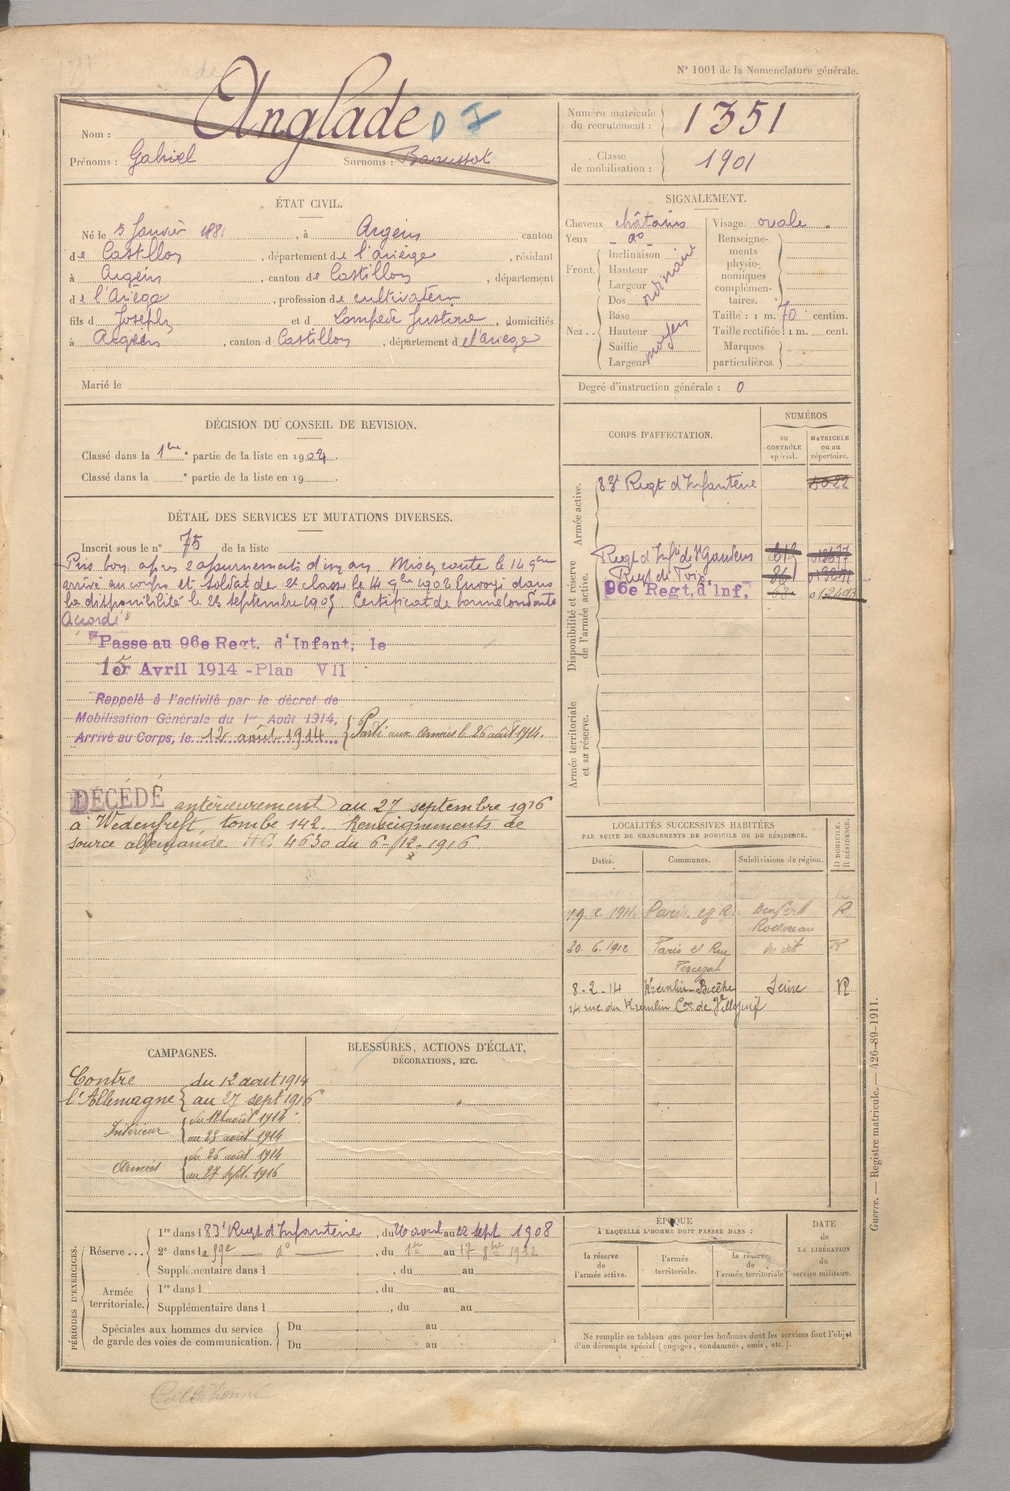 N° 1001 de la Nomenclature générale.
Nom : Anglade D
Prénoms : Gabriel Surnoms :
Numéro matricule du recrutement : 1351
Classe de mobilisation : 1901
ÉTAT CIVIL.
Né le 5 Janvier 188, à Argein canton
de Castillon, département de l'ariège, résidant
à Argein, canton de Castillon, département
de l'Ariège, profession de cultivateur
fils d Joseph et d Justine, domiciliés
à Argein, canton d Castillon, département de l'ariège
Marié le
SIGNALEMENT.
Cheveux châtains
Yeux d°
Front. Inclinaison
Hauteur
Largeur
ordinaire
Nez Dos
Base
Hauteur
Saillie
Largeur
moyen
Visage ovale
Renseignements physionomiques complémentaires.
Taille : 1 m. 70 centim.
Taille rectifiée : 1 m. cent.
Marques particulières.
Degré d'instruction générale : 0
DÉCISION DU CONSEIL DE REVISION.
Classé dans la 1ère partie de la liste en 1902.
Classé dans la e partie de la liste en 19
DÉTAIL DES SERVICES ET MUTATIONS DIVERSES.
Inscrit sous le n° 75 de la liste
Pris bon après 2 ajournements d'un an. Mis en route le 14 9bre
arrivé au corps et soldat de 2e classe le 14 9bre 1902 Envoyé dans
la disponibilité le 23 septembre 1905 Certificat de bonne conduite
Accordé
Passe au 96e Regt. d'Infant; le
15 Avril 1914 - Plan VII
Rappelé à l'activité par le décret de
Mobilisation Générale du 1er Août 1914,
Arrivé au Corps, le 12 août 1914 Parti aux armées le 26 août 1914.
DÉCÉDÉ antérieurement au 27 septembre 1916
à tombe 142. Renseignements de
source allemande HC 4630 du 6-12-1916
CORPS D'AFFECTATION.
NUMÉROS
au CONTRÔLE spécial.
MATRICULE ou au répertoire.
Armée active.
83e Regt d'Infanterie
Disponibilité et réserve de l'armée active.
Regt d'Infie de St Gaudens
Regt de
96e Regt, d'Inf.
Armée territoriale et sa réserve.
LOCALITÉS SUCCESSIVES HABITÉES
PAR SUITE DE CHANGEMENTS DE DOMICILE OU DE RÉSIDENCE.
Dates. Communes. Subdivisions de région. D DOMICILE. R RÉSIDENCE.
1911 Paris R
30.6.1912 Paris
8-2-14 Kremlin-Bicêtre Seine R
rue du Kremlin Con de Villejuif
CAMPAGNES.
Contre l'Allemagne du 12 aout 1914
au 27 sept 1916
Intérieur du 12 août 1914
au 25 août 1914
Armées du 26 août 1914
au 27 sept. 1916
BLESSURES, ACTIONS D'ÉCLAT,
DÉCORATIONS, ETC.
PÉRIODES D'EXERCICES.
Réserve... 1re dans l 83e Regt d'Infanterie, du aout au sept 1908
2e dans le d°, du 1er au 17 8bre
Supplémentaire dans l, du au
Armée territoriale. 1re dans l, du au
Supplémentaire dans l, du au
Spéciales aux hommes du service
de garde des voies de communication. Du au
Du au
ÉPOQUE
À LAQUELLE L'HOMME DOIT PASSER DANS :
la réserve de l'armée active.
l'armée territoriale.
la réserve de l'armée territoriale
DATE DE LA LIBÉRATION du service militaire.
Ne remplir ce tableau que pour les hommes dont les services font l'objet
d'un décompte spécial (engagés, condamnés, omis, etc.).
Guerre. — Registre matricule. — 426-89-1911.
Collationné